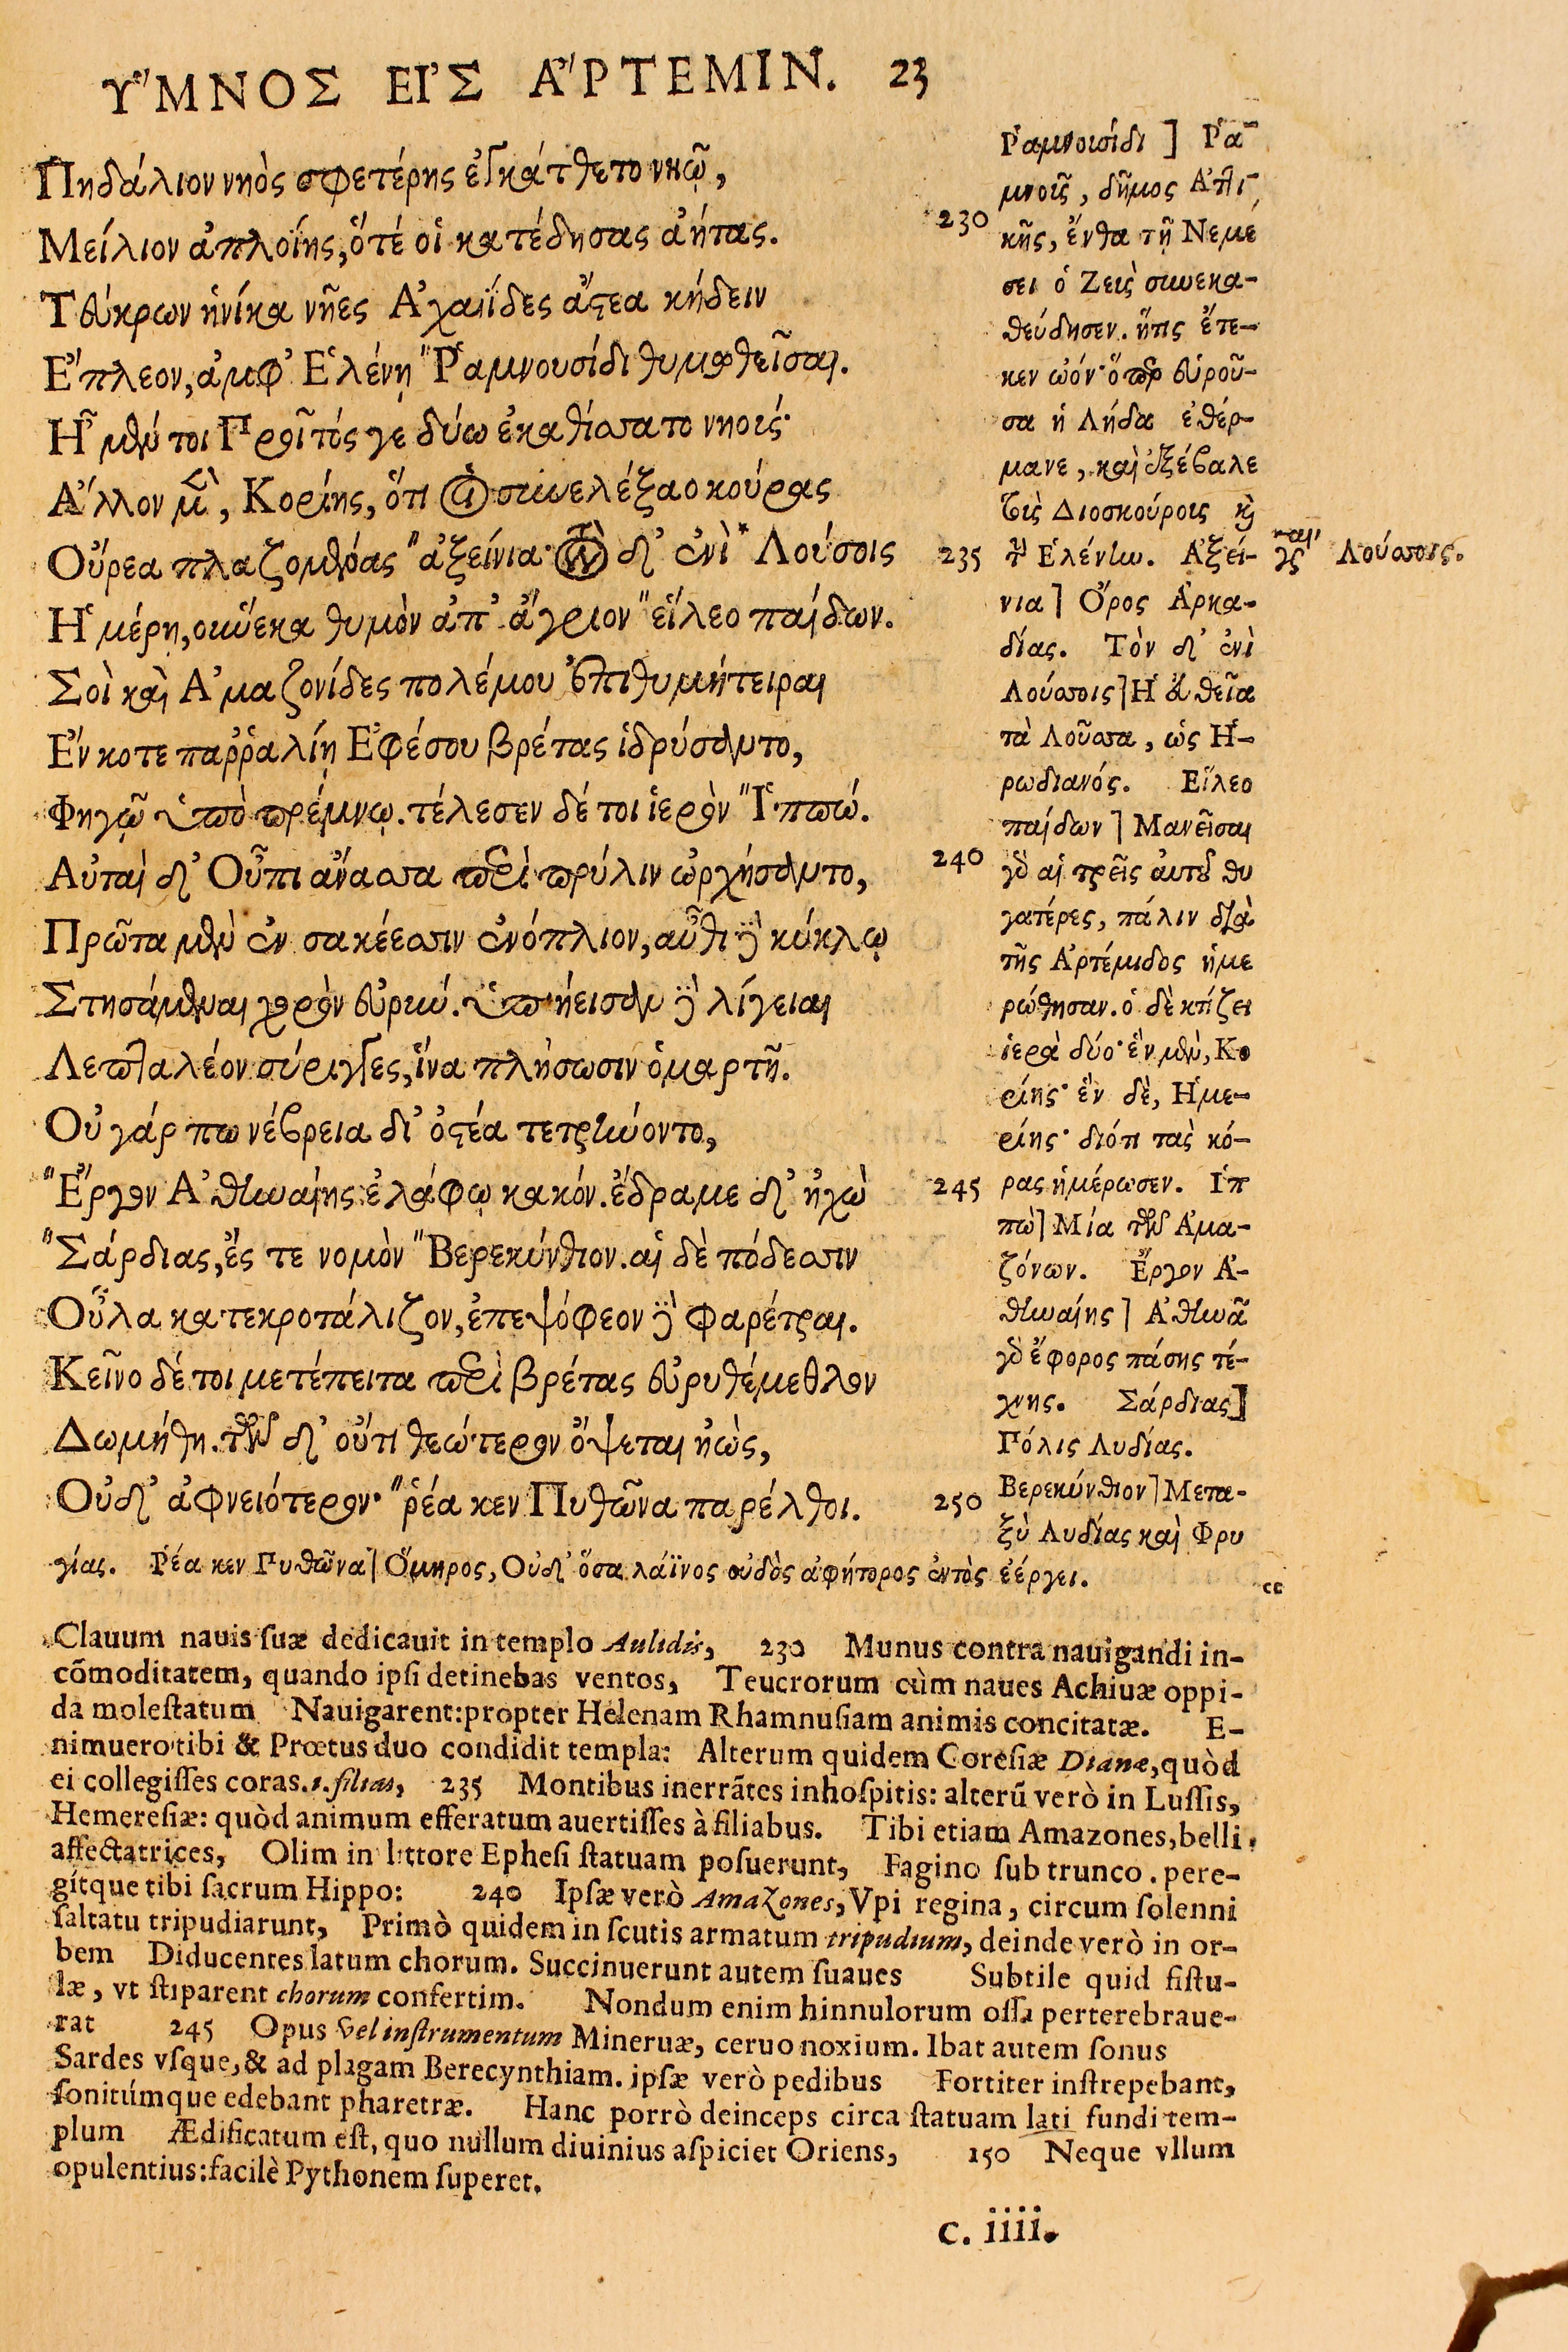 ὙΜΝΟΣ ΕἸΣ ἌΡΤΕΜΙΝ. 23
Πηδάλιον νηὸς σφετέρης ἐγκάτθετο νηῷ,
Μείλιον ἀπλοΐης, ὅτέ οἱ κατέδησας ἀήτας. 230
Τεύκρων ἡνίκα νῆες Ἀχαιΐδες ἄςεα κήδειν
Ἔπλεον, ἀμφ' Ἑλένῃ "Ῥαμνουσίδι θυμωθεῖσαι.
Ἦ μέν τοι Προῖτός γε δύω ἐκαθίσσατο νηούς·
Ἄλλον μὲν, Κορίης, ὅτι οἱ συνελέξαο κούρας
Οὔρεα πλαζομένας "ἀξείνια· τὸν δ' ἐνὶ * Λούσοις 235
Ἡμέρῃ, οὕνεκα θυμὸν ἀπ' ἄγριον "εἵλεο παίδων.
Σοὶ καὶ Ἀμαζονίδες πολέμου ἐπιθυμήτειραι
Ἔν κοτε παῤῥαλίῃ Ἐφέσου βρέτας ἱδρύσαντο,
Φηγῷ ὑπὸ πρέμνῳ. τέλεσεν δέ τοι ἱερὸν "Ἱππώ.
Αὐταὶ δ' Οὖπι ἄνασσα περὶ πρύλιν ὠρχήσαντο, 240
Πρῶτα μὲν ἐν σακέεσσιν ἐνόπλιον, αὖθι δὲ κύκλῳ
Στησάμεναι χορὸν εὐρύν. ὑπήεισαν δὲ λίγειαι
Λεπταλέον σύριγγες, ἵνα πλήσωσιν ὁμαρτῆ.
Οὐ γάρ πω νέβρεια δι' ὀςέα τετρήνοντο,
"Ἔργον Ἀθηναίης ἐλάφῳ κακόν. ἔδραμε δ' ἠχὼ 245
"Σάρδιας, ἔς τε νομὸν "Βερεκύνθιον. αἱ δὲ πόδεσσιν
Οὖλα κατεκροτάλιζον, ἐπεψόφεον δὲ φαρέτραι.
Κεῖνο δέ τοι μετέπειτα περὶ βρέτας εὐρυθέμεθλον
Δωμήθη. τῶν δ' οὔτι θεώτερον ὄψεται ἠὼς,
Οὐδ' ἀφνειότερον· "ῥέα κεν Πυθῶνα παρέλθοι. 250
Ῥαμνουσίδι ] Ῥα-
μνοῦς, δῆμος Ἀττι-
κῆς, ἔνθα τῇ Νεμέ
σει ὁ Ζεὺς συνεκα-
θεύδησεν. ἥτις ἔτε-
κεν ὠόν· ὅπερ εὑροῦ-
σα ἡ Λήδα ἐθέρ-
μανε, καὶ ἐξέβαλε
τοὺς Διοσκούρους καὶ
τὴν Ἑλένην. Ἀξεί-
νια ] Ὄρος Ἀρκα-
δίας. Τὸν δ' ἐνὶ
Λούσσοις ] Ἡ εὐθεῖα
τὰ Λοῦσσα, ὡς Ἡ-
ρωδιανός. Εἵλεο
παίδων ] Μανεῖσαι
γὰρ αἱ τρεῖς αὐτοῦ θυ
γατέρες, πάλιν διὰ
τῆς Ἀρτέμιδος ἡμε
ρώθησαν. ὁ δὲ κτίζει
ἱερὰ δύο· ἓν μὲν, Κο
ρίης· ἓν δὲ, Ἡμε-
ρίης· διότι τὰς κό-
ρας ἡμέρωσεν. Ἱπ
πὼ ] Μία τῶν Ἀμα-
ζόνων. Ἔργον Ἀ-
θηναίης ] Ἀθηνᾶ
γὰρ ἔφορος πάσης τέ-
χνης. Σάρδιας ]
Πόλις Λυδίας.
Βερεκύνθιον ] Μετα-
ξὺ Λυδίας καὶ Φρυ
γίας. Ῥέα κεν Πυθῶνα ] Ὅμηρος, Οὐδ' ὅσα λάϊνος οὐδὸς ἀφήτορος ἐντὸς ἐέργει.
Λούσσοις.
Clauum nauis suæ dedicauit in templo Aulidis, 230 Munus contra nauigandi in-
cõmoditatem, quando ipsi detinebas ventos, Teucrorum cùm naues Achiuæ oppi-
da molestatum Nauigarent: propter Helenam Rhamnusiam animis concitatæ. E-
nimuero tibi & Prœtus duo condidit templa: Alterum quidem Coresiæ Dianæ, quòd
ei collegisses coras .i. filias, 235 Montibus inerrãtes inhospitis: alterũ verò in Lussis,
Hemeresiæ: quòd animum efferatum auertisses à filiabus. Tibi etiam Amazones, belli
affectatrices, Olim in littore Ephesi statuam posuerunt, Fagino sub trunco. pere-
gítque tibi sacrum Hippo: 240 Ipsæ verò Amazones, Vpi regina, circum solenni
saltatu tripudiarunt, Primò quidem in scutis armatum tripudium, deinde verò in or-
bem Diducentes latum chorum. Succinuerunt autem suaues Subtile quid fistu-
læ, vt stiparent chorum confertim. Nondum enim hinnulorum ossa perterebraue-
rat 245 Opus vel instrumentum Mineruæ, ceruo noxium. Ibat autem sonus
Sardes vsque, & ad plagam Berecynthiam. ipsæ verò pedibus Fortiter instrepebant,
sonitúmque edebant pharetræ. Hanc porrò deinceps circa statuam lati fundi tem-
plum Ædificatum est, quo nullum diuinius aspiciet Oriens, 150 Neque vllum
opulentius: facilè Pythonem superet.
c. iiii.